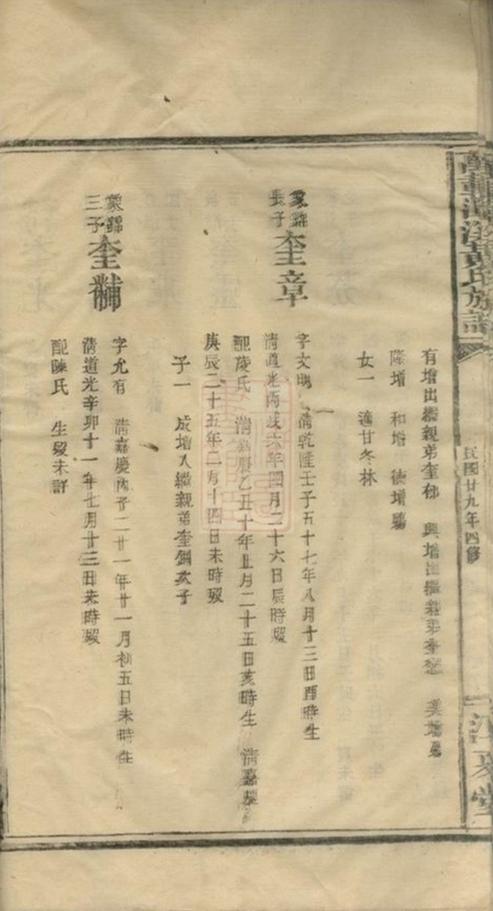 黃氏族譜
民國廿九年四修
江夏堂
有增出繼親弟奎 興增出繼親弟奎
隆增 和增 德增
女一 適甘冬林
長子 奎章
字文明 清乾隆壬子五十七年八月十三日酉時生
清道光丙戌六年四月二十六日辰時歿
配陵氏 清嘉慶乙丑十年 月二十五日亥時生 清嘉慶
庚辰二十五年二月十四日未時歿
子一 成增入繼親弟奎 次子
三子 奎黼
字允有 清嘉慶丙子二十一年十一月初五日未時生
清道光辛卯十一年七月廿三日未時歿
配陳氏 生歿未詳